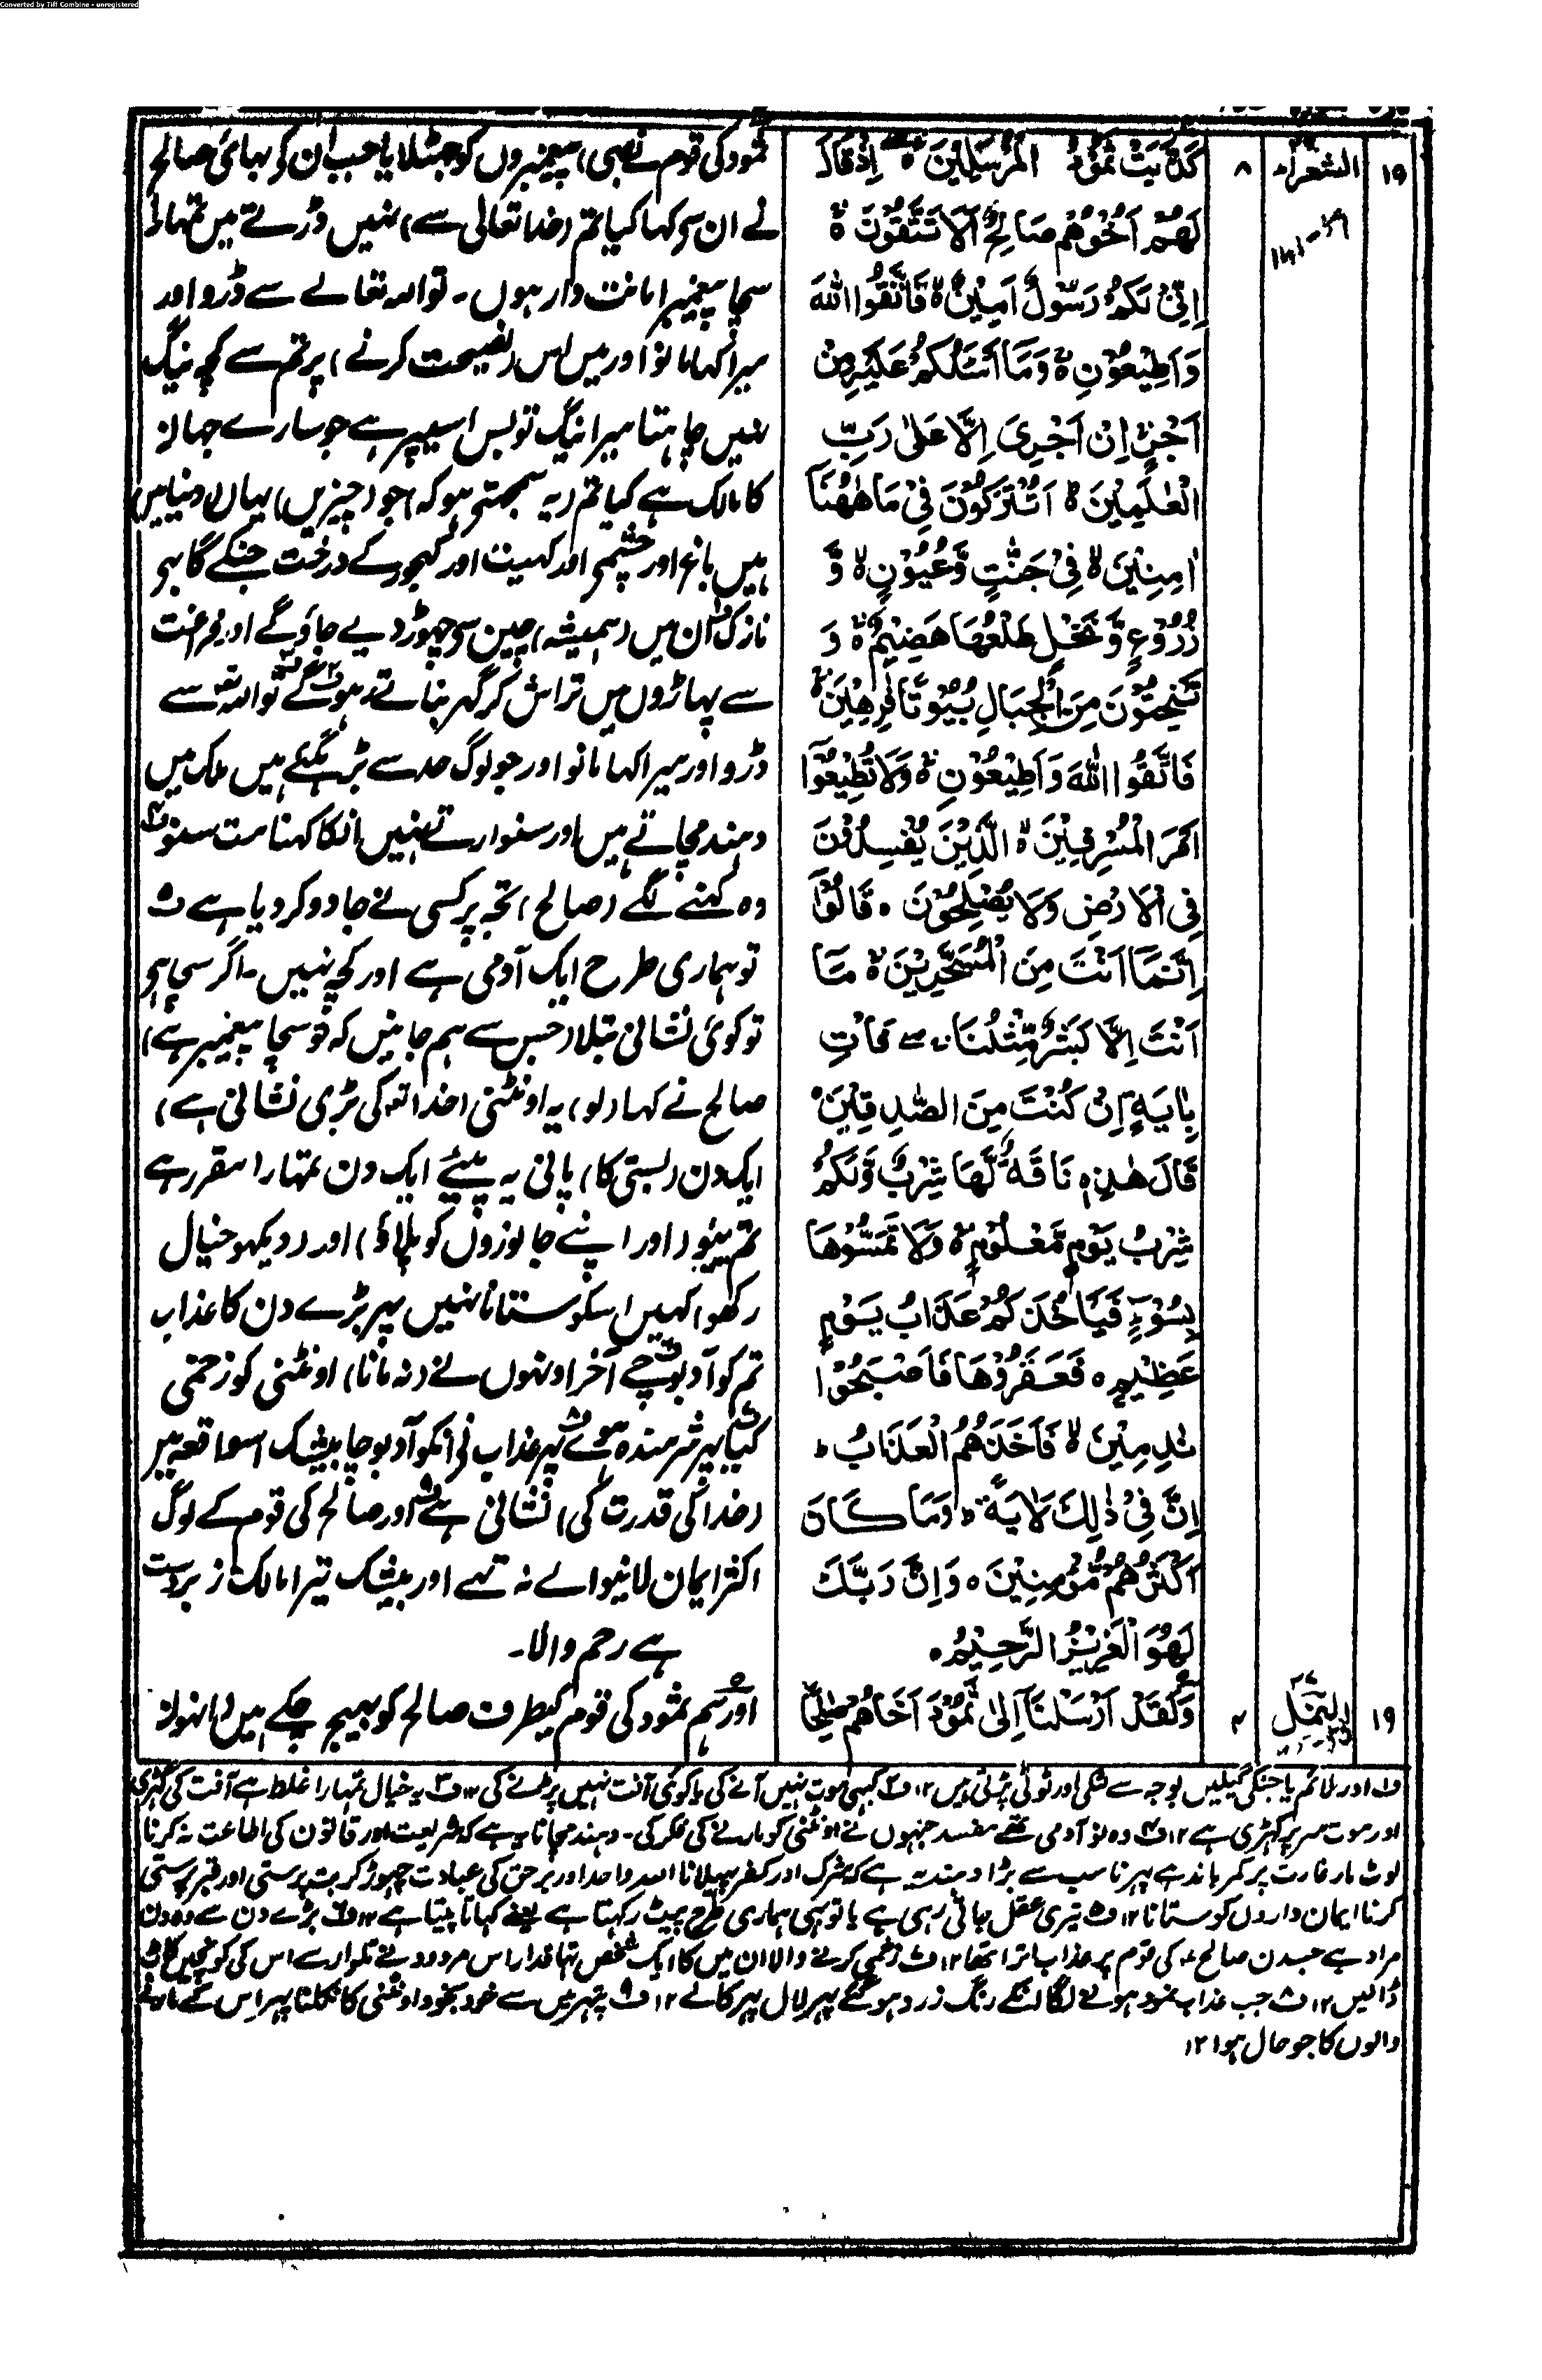 Converted by Tiff Combine - unregistered
۱۹
الشعراء
۸
كَذَّبَتْ ثَمُوْدُ الْمُرْسَلِيْنَ ۚ اِذْ قَالَ
لَهُمْ اَخُوْهُمْ صٰلِحٌ اَلَا تَتَّقُوْنَ ۚ
اِنِّيْ لَكُمْ رَسُوْلٌ اَمِيْنٌ ۙ فَاتَّقُوا اللّٰهَ
وَاَطِيْعُوْنِ ۚ وَمَا اَسْئَلُكُمْ عَلَيْهِ مِنْ
اَجْرٍ اِنْ اَجْرِيَ اِلَّا عَلٰى رَبِّ
الْعٰلَمِيْنَ ۭ اَتُتْرَكُوْنَ فِيْ مَا هٰهُنَآ
اٰمِنِيْنَ ۙ فِيْ جَنّٰتٍ وَّعُيُوْنٍ ۙ وَّ
زُرُوْعٍ وَّنَخْلٍ طَلْعُهَا هَضِيْمٌ ۚ وَ
تَنْحِتُوْنَ مِنَ الْجِبَالِ بُيُوْتًا فٰرِهِيْنَ ۚ
فَاتَّقُوا اللّٰهَ وَاَطِيْعُوْنِ ۚ وَلَا تُطِيْعُوْٓا
اَمْرَ الْمُسْرِفِيْنَ ۙ الَّذِيْنَ يُفْسِدُوْنَ
فِي الْاَرْضِ وَلَا يُصْلِحُوْنَ ۰ قَالُوْٓا
اِنَّمَا اَنْتَ مِنَ الْمُسَحَّرِيْنَ ۚ مَا
اَنْتَ اِلَّا بَشَرٌ مِّثْلُنَا فَاْتِ
بِاٰيَةٍ اِنْ كُنْتَ مِنَ الصّٰدِقِيْنَ ۰
قَالَ هٰذِهٖ نَاقَةٌ لَّهَا شِرْبٌ وَّلَكُمْ
شِرْبُ يَوْمٍ مَّعْلُوْمٍ ۚ وَلَا تَمَسُّوْهَا
بِسُوْٓءٍ فَيَاْخُذَكُمْ عَذَابُ يَوْمٍ
عَظِيْمٍ ۰ فَعَقَرُوْهَا فَاَصْبَحُوْا
نٰدِمِيْنَ ۙ فَاَخَذَهُمُ الْعَذَابُ ۭ
اِنَّ فِيْ ذٰلِكَ لَاٰيَةً ۭ وَمَا كَانَ
اَكْثَرُهُمْ مُّؤْمِنِيْنَ ۰ وَاِنَّ رَبَّكَ
لَهُوَ الْعَزِيْزُ الرَّحِيْمُ ۰
ثمود کی قوم نے بھی پیغمبروں کو جھٹلایا جب ان کو بہائی صالح
نے ان سی کہا کیا تم (خدا تعالی سے) نہیں ڈرتے میں تمہارا
سچا پیغمبر امانت دار ہوں ۔ تو اللہ تعالے سے ڈرو اور
میرا کہا مانو اور میں اس (نصیحت کرنے) پر تم سے کچہ نیگ
نہیں چاہتا میرا نیگ تو بس اسیپر ہے جو سارے جہان
کا مالک ہے کیا تم (یہ سمجہتی ہو کہ) جو (چیزیں) یہاں (دنیا میں)
ہیں باغ اور چشمی اور کہیت اور کہجور کے درخت جنکے گابہر
نازک ان میں (ہمیشہ) چین سی چہوڑ دیے جاؤگے اور فراغت
سے پہاڑوں میں تراش کر گہر بناتے رہوگے تو اللہ سے
ڈرو اور میرا کہا مانو اور جو لوگ حد سے بڑہ گئے ہیں ملک میں
دہند مچاتے ہیں اور سنوارتے نہیں انکا کہنا مت سنو
وہ کہنے لگے (صالح) تجہ پر کسی نے جادو کر دیا ہے
تو ہماری طرح ایک آدمی ہے اور کچہ نہیں ۔ اگر سچا ہی
تو کوئی نشانی بتلا (جس سے ہم جانیں کہ تو سچا پیغمبر ہے)
صالح نے کہا (لو) یہ اونٹنی (خدا کی بڑی نشانی ہے)
ایک دن (بستی کا) پانی یہ پیئے ایک دن تمہارا مقرر ہے
تم پیو (اور اپنے جانوروں کو پلاؤ) اور (دیکہو خیال
رکھو) کہیں اسکو ستانا نہیں پہر بڑے دن کا عذاب
تم کو آدبوچے آخر اونہوں نے (نہ مانا) اونٹنی کو زخمی
کیا پہر شرمندہ ہوئے پہر عذاب نی انکو آدبوچا بیشک اس واقعہ میں
(خدا کی قدرت کی) نشانی ہے اور صالح کی قوم کے لوگ
اکثر ایمان لانیوالے نہ تہے اور بیشک تیرا مالک زبردست
ہے رحم والا۔
۱۹
النمل
۴
وَلَقَدْ اَرْسَلْنَا اِلٰى ثَمُوْدَ اَخَاهُمْ صٰلِحًا
اور ہم ثمود کی قوم کیطرف صالح کو بہیج چکے ہیں (انہوں نے
ف۱ اور ملائم یا جنکی گیلیں بوجہ سے لٹکی اور ٹوٹی پڑتی ہیں ۱۲ ف۲ کبہی موت نہیں آنے کی یا کوئی آفت نہیں پڑنے کی ۱۲ ف۳ یہ خیال تمہارا غلط ہے آفت کی گہڑی
اور موت سر پر کہڑی ہے ۱۲ ف۴ وہ نو آدمی تہے مفسد جنہوں نے اونٹنی کو مارنے کی فکر کی ۔ دہند مچانا یہ ہے کہ شریعت اور قانون کی اطاعت نہ کرنا
لوٹ مار غارت پر کمر باندہے پہرنا سب سے بڑا دہند یہ ہے کہ شرک اور کفر پہیلانا اللہ واحد اور برحق کی عبادت چہوڑ کر بت پرستی اور قبر پرستی
کرنا ایمان داروں کو ستانا ۱۲ ف۵ تیری عقل جاتی رہی ہے یا تو بہی ہماری طرح پیٹ رکہتا ہے یعنے کہاتا پیتا ہے ۱۲ ف۶ بڑے دن سے وہ دن
مراد ہے جسدن صالح ع کی قوم پر عذاب اترا تہا ۱۲ ف۷ زخمی کرنے والا ان میں کا ایک شخص تہا قدار اس مردود نے تلوار سے اس کی کونچیں کاٹ
ڈالیں ۱۲ ف۸ جب عذاب نمود ہونے لگا انکے رنگ زرد ہو گئے پہر لال پہر کالے ۱۲ ف۹ پتہر میں سے خود بخود اونٹنی کا نکلنا پہر اس کے مارنے
والوں کا جو حال ہوا ۱۲